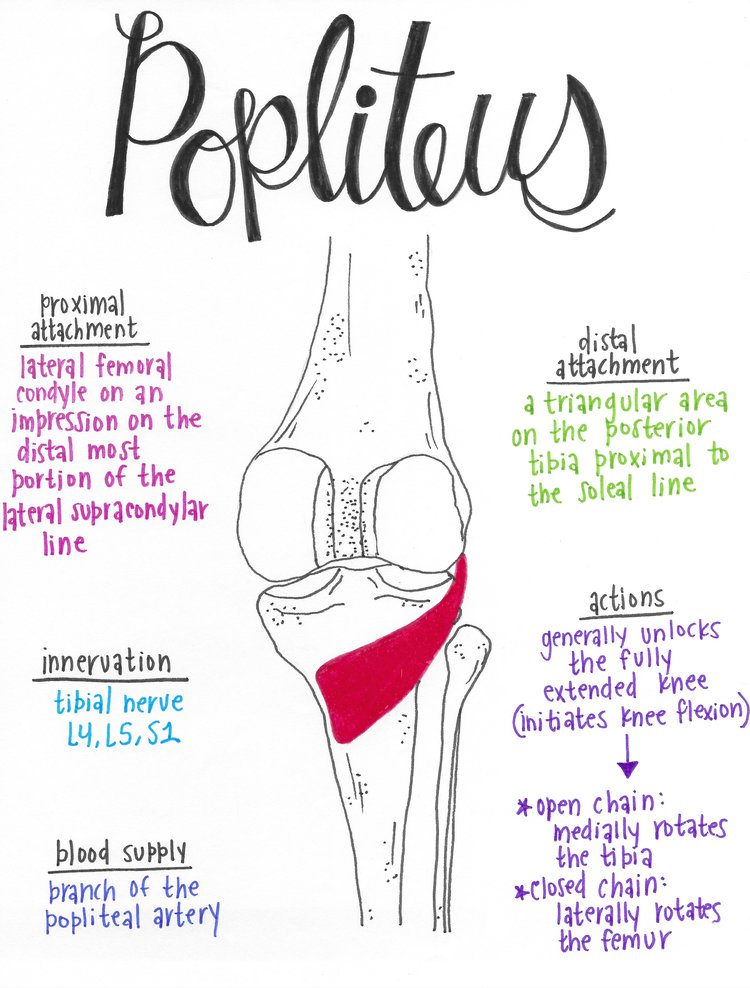 Popliteus
proximal
attachment
lateral femoral
condyle on an
impression on the
distal most
portion of the
lateral supracondylar
line
innervation
tibial nerve
L4, L5, S1
blood supply
branch of the
popliteal artery
distal
attachment
a triangular area
on the posterior
tibia proximal to
the soleal line
actions
generally unlocks
the fully
extended knee
(initiates knee flexion)
*open chain:
medially rotates
the tibia
*closed chain:
laterally rotates
the femur